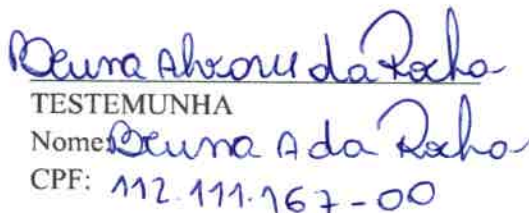 Bruna Alvares da Rocha
TESTEMUNHA
Nome: Bruna A da Rocha
CPF: 112.111.167-00